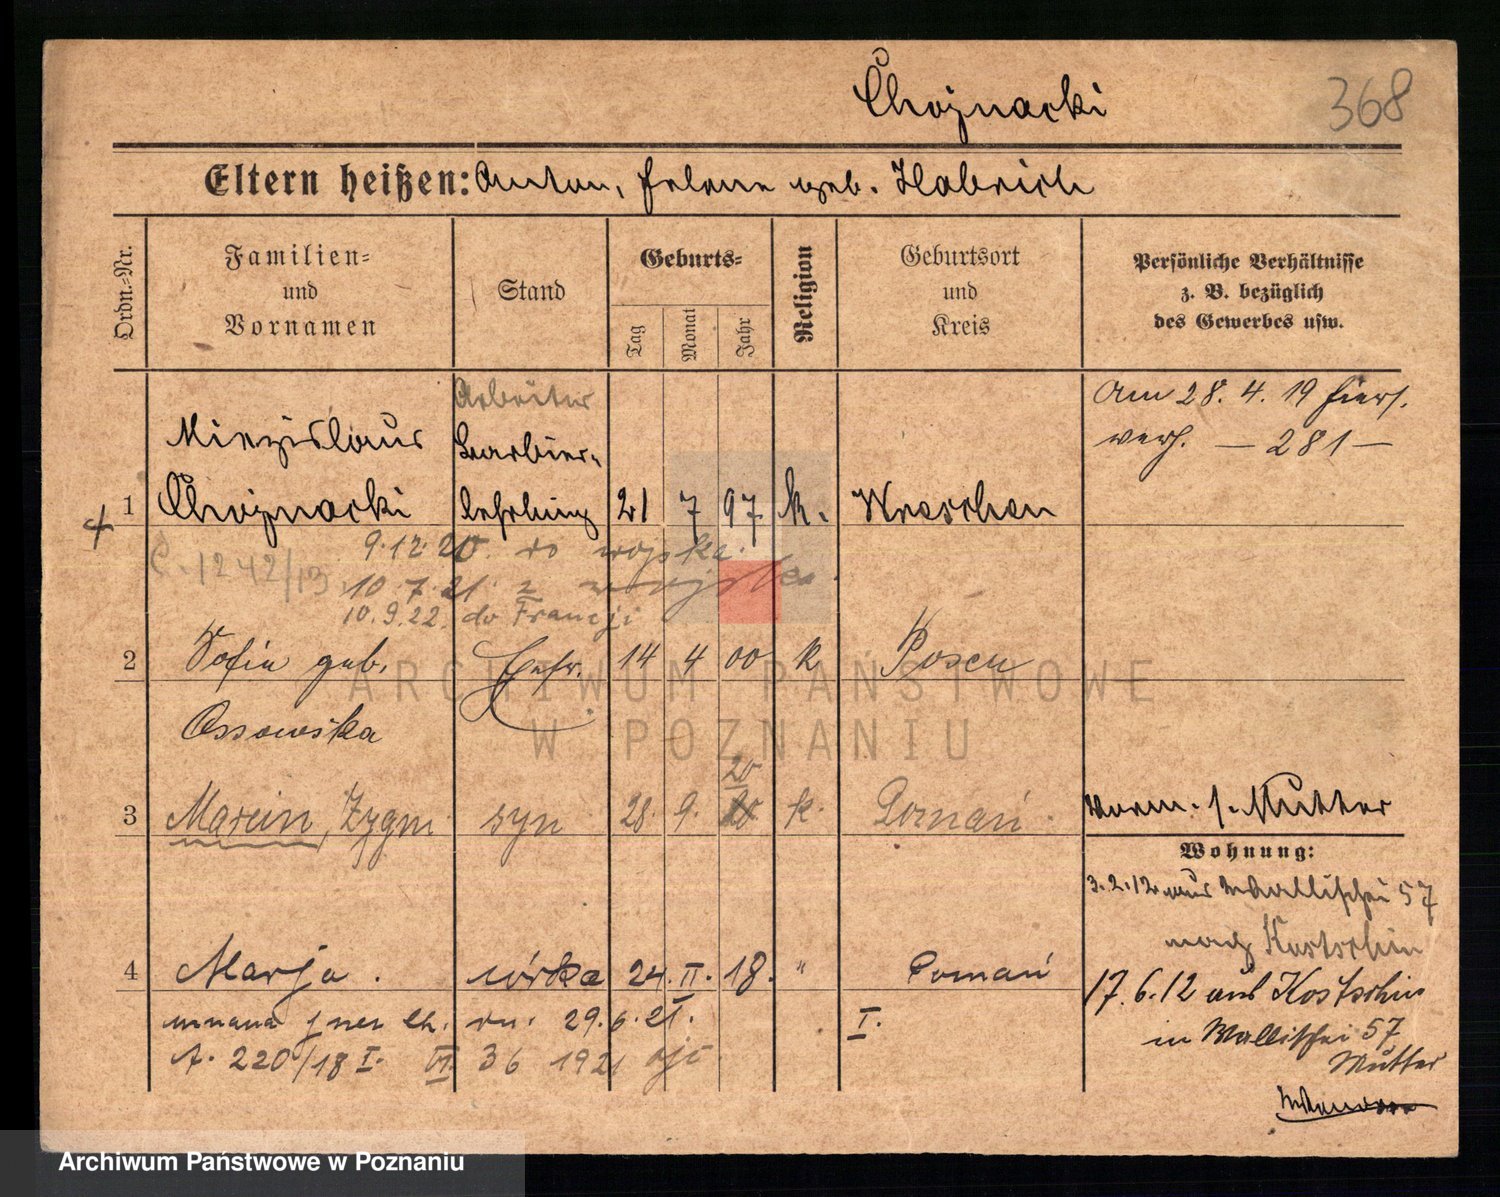 Chojnacki
368
Eltern heißen: Anton, Helene geb. Habrich
Ordn.-Nr.
Familien-
und
Vornamen
Stand
Geburts-
Tag
Monat
Jahr
Religion
Geburtsort
und
Kreis
Persönliche Verhältnisse
z. B. bezüglich
des Gewerbes usw.
Arbeiter
Am 28. 4. 19 hiers.
verh. — 281 —
Miezislaus
Barbier-
1 Chojnacki lehrling 21 7 97 k. Wreschen
9.12.20. do wojska.
C. 1242/13
10.7.21. z wojska.
10.9.22. do Francji
2 Sofie geb. Ehefr. 14 4 00 k Posen
Ossowska
20
3 Marcin, Zygm syn 28. 9. k. Poznań.
Vorm. s. Mutter
Wohnung:
3.2.12 aus Wallischei 57
nach Kostschin
4 Marja. córka 24. II. 18. " Poznań
17.6.12 aus Kostschin
uznana przez Ch. dn. 29.6.21. I.
in Wallischei 57
A. 220/18 I. VI 36 1921
Mutter
ARCHIWUM PAŃSTWOWE
W POZNANIU
Archiwum Państwowe w Poznaniu